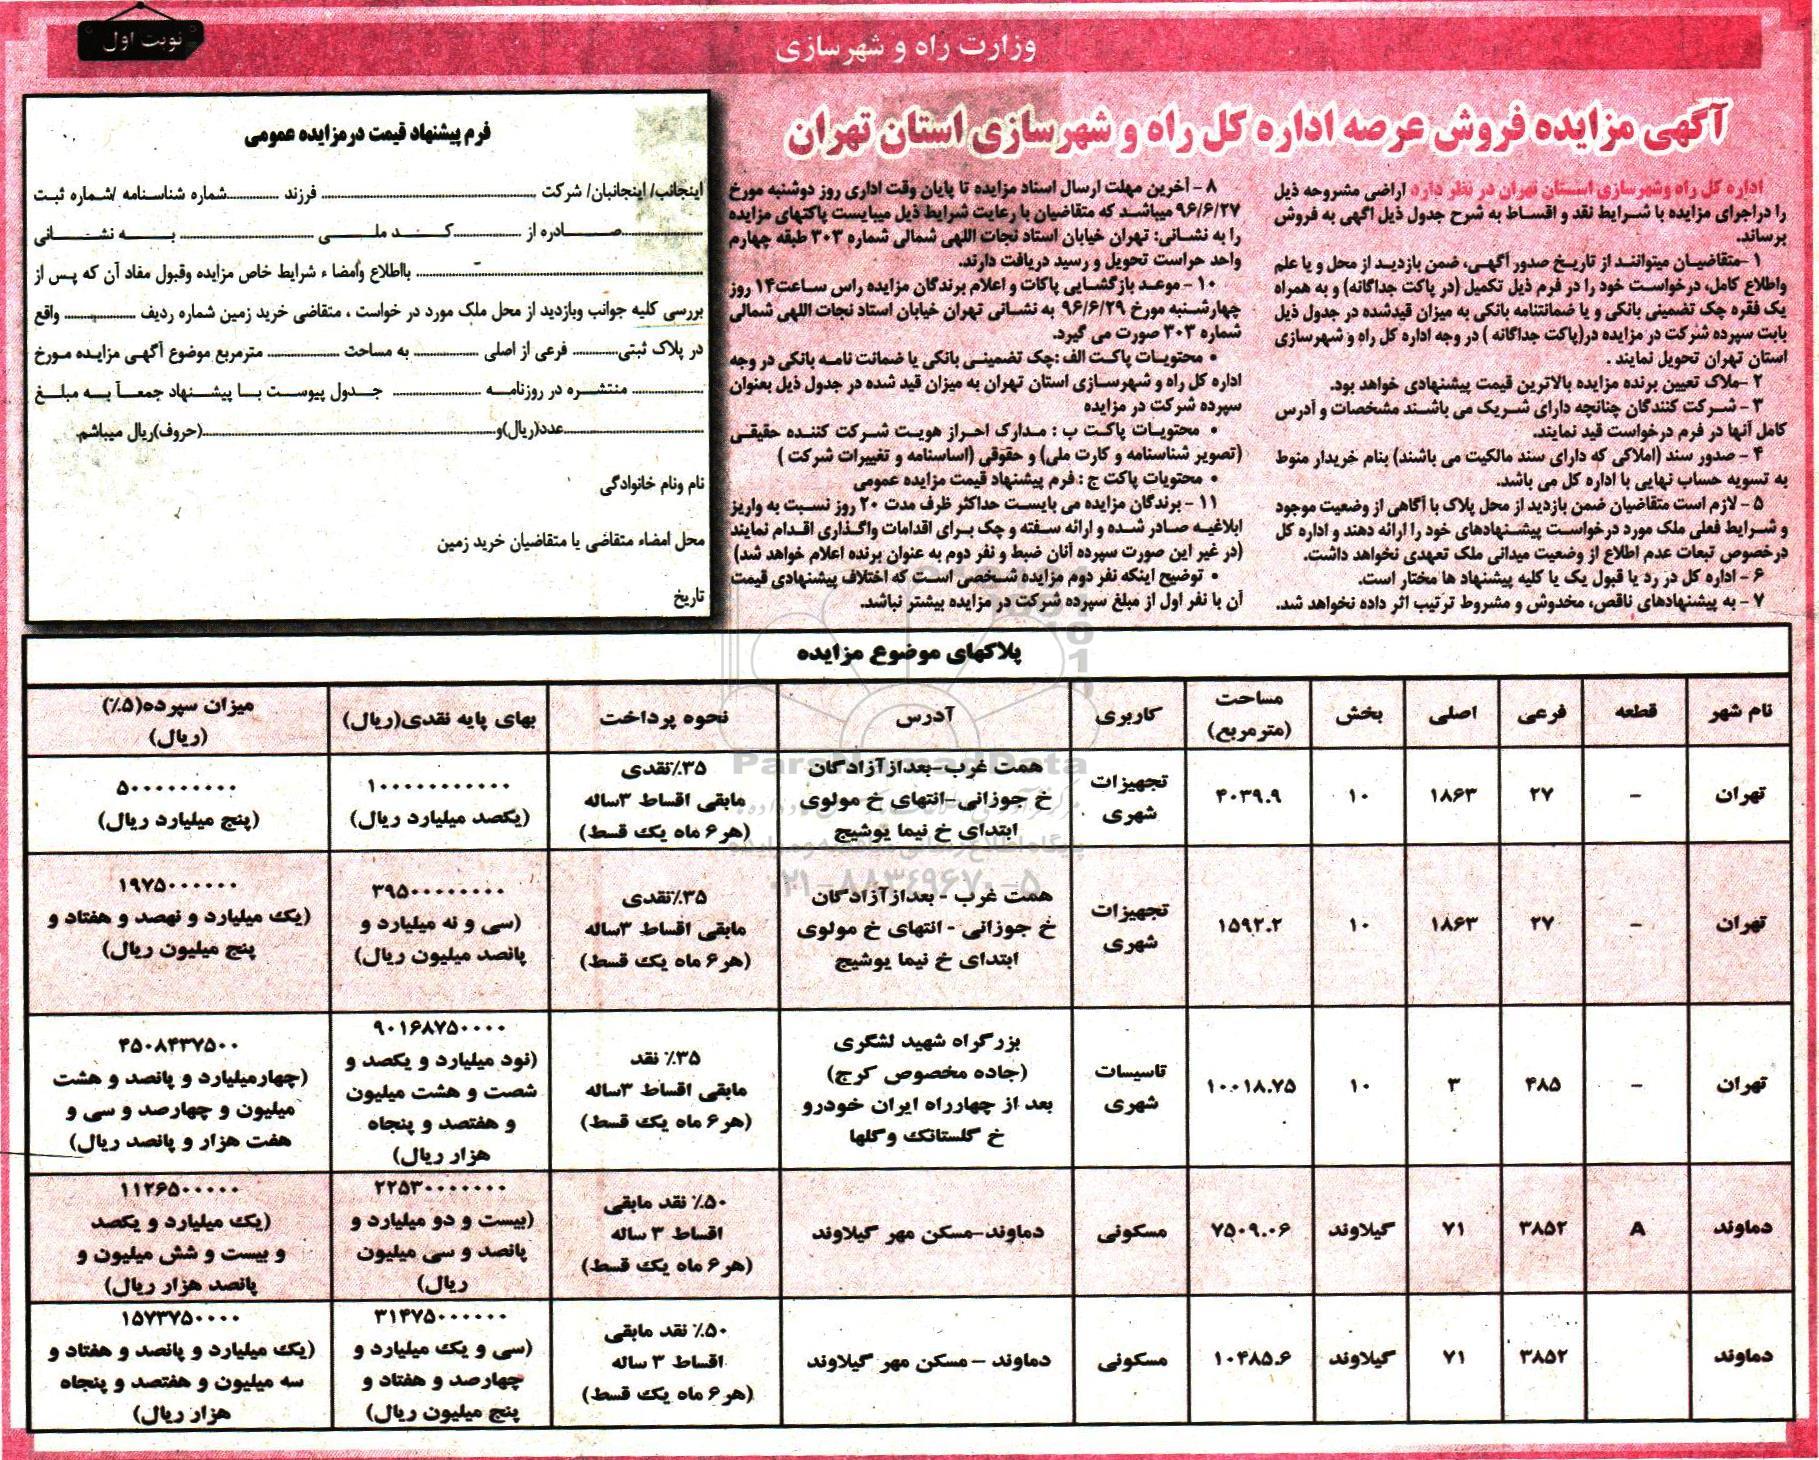 نوبت اول
وزارت راه و شهرسازی
آگهی مزایده فروش عرصه اداره کل راه و شهرسازی استان تهران
اداره کل راه وشهرسازی استان تهران در نظر دارد اراضی مشروحه ذیل
را دراجرای مزایده با شرایط نقد و اقساط به شرح جدول ذیل اگهی به فروش
برساند.
۱ -متقاضیان میتوانند از تاریخ صدور آگهی، ضمن بازدید از محل و یا علم
واطلاع کامل، درخواست خود را در فرم ذیل تکمیل (در پاکت جداگانه) و به همراه
یک فقره چک تضمینی بانکی و یا ضمانتنامه بانکی به میزان قیدشده در جدول ذیل
بابت سپرده شرکت در مزایده در(پاکت جداگانه ) در وجه اداره کل راه و شهرسازی
استان تهران تحویل نمایند .
۲ -ملاک تعیین برنده مزایده بالاترین قیمت پیشنهادی خواهد بود.
۳ - شرکت کنندگان چنانچه دارای شریک می باشند مشخصات و آدرس
کامل آنها در فرم درخواست قید نمایند.
۴ - صدور سند (املاکی که دارای سند مالکیت می باشند) بنام خریدار منوط
به تسویه حساب نهایی با اداره کل می باشد.
۵ - لازم است متقاضیان ضمن بازدید از محل پلاک با آگاهی از وضعیت موجود
و شرایط فعلی ملک مورد درخواست پیشنهادهای خود را ارائه دهند و اداره کل
درخصوص تبعات عدم اطلاع از وضعیت میدانی ملک تعهدی نخواهد داشت.
۶ - اداره کل در رد یا قبول یک یا کلیه پیشنهاد ها مختار است.
۷ - به پیشنهادهای ناقص، مخدوش و مشروط ترتیب اثر داده نخواهد شد.
۸ - آخرین مهلت ارسال اسناد مزایده تا پایان وقت اداری روز دوشنبه مورخ
۹۶/۶/۲۷ میباشد که متقاضیان با رعایت شرایط ذیل میبایست پاکتهای مزایده
را به نشانی: تهران خیابان استاد نجات اللهی شمالی شماره ۳۰۳ طبقه چهارم
واحد حراست تحویل و رسید دریافت دارند.
۱۰ - موعد بازگشایی پاکات و اعلام برندگان مزایده راس ساعت۱۴ روز
چهارشنبه مورخ ۹۶/۶/۲۹ به نشانی تهران خیابان استاد نجات اللهی شمالی
شماره ۳۰۳ صورت می گیرد.
• محتویات پاکت الف :چک تضمینی بانکی یا ضمانت نامه بانکی در وجه
اداره کل راه و شهرسازی استان تهران به میزان قید شده در جدول ذیل بعنوان
سپرده شرکت در مزایده
• محتویات پاکت ب : مدارک احراز هویت شرکت کننده حقیقی
(تصویر شناسنامه و کارت ملی) و حقوقی (اساسنامه و تغییرات شرکت )
• محتویات پاکت ج : فرم پیشنهاد قیمت مزایده عمومی
۱۱ - برندگان مزایده می بایست حداکثر ظرف مدت ۲۰ روز نسبت به واریز
ابلاغیه صادر شده و ارائه سفته و چک برای اقدامات واگذاری اقدام نمایند
(در غیر این صورت سپرده آنان ضبط و نفر دوم به عنوان برنده اعلام خواهد شد)
• توضیح اینکه نفر دوم مزایده شخصی است که اختلاف پیشنهادی قیمت
آن با نفر اول از مبلغ سپرده شرکت در مزایده بیشتر نباشد.
فرم پیشنهاد قیمت درمزایده عمومی
اینجانب/ اینجانبان/ شرکت ........ فرزند ........شماره شناسنامه /شماره ثبت
........صادره از ........کد ملی ........ به نشانی
........ بااطلاع وامضا ء شرایط خاص مزایده وقبول مفاد آن که پس از
بررسی کلیه جوانب وبازدید از محل ملک مورد در خواست ، متقاضی خرید زمین شماره ردیف ........ واقع
در پلاک ثبتی........ فرعی از اصلی ........ به مساحت ........ مترمربع موضوع آگهی مزایده مورخ
........ منتشره در روزنامه ........ جدول پیوست با پیشنهاد جمعآ به مبلغ
........عدد(ریال)و........(حروف)ریال میباشم.
نام ونام خانوادگی
محل امضاء متقاضی یا متقاضیان خرید زمین
تاریخ
پلاکهای موضوع مزایده
نام شهر قطعه فرعی اصلی بخش مساحت (مترمربع) کاربری آدرس نحوه پرداخت بهای پایه نقدی(ریال) میزان سپرده(۵٪) (ریال)
تهران - ۲۷ ۱۸۶۳ ۱۰ ۴۰۳۹.۹ تجهیزات شهری همت غرب-بعدازآزادگان خ جوزانی-انتهای خ مولوی ابتدای خ نیما یوشیج ۳۵٪نقدی مابقی اقساط ۳ساله (هر۶ ماه یک قسط) ۱۰۰۰۰۰۰۰۰۰۰۰ (یکصد میلیارد ریال) ۵۰۰۰۰۰۰۰۰۰ (پنج میلیارد ریال)
تهران - ۲۷ ۱۸۶۳ ۱۰ ۱۵۹۲.۲ تجهیزات شهری همت غرب - بعدازآزادگان خ جوزانی - انتهای خ مولوی ابتدای خ نیما یوشیج ۳۵٪نقدی مابقی اقساط ۳ساله (هر۶ ماه یک قسط) ۳۹۵۰۰۰۰۰۰۰۰ (سی و نه میلیارد و پانصد میلیون ریال) ۱۹۷۵۰۰۰۰۰۰ (یک میلیارد و نهصد و هفتاد و پنج میلیون ریال)
تهران - ۴۸۵ ۳ ۱۰ ۱۰۰۱۸.۷۵ تاسیسات شهری بزرگراه شهید لشگری (جاده مخصوص کرج) بعد از چهارراه ایران خودرو خ گلستانک وگلها ۳۵٪ نقد مابقی اقساط ۳ساله (هر۶ ماه یک قسط) ۹۰۱۶۸۷۵۰۰۰۰ (نود میلیارد و یکصد و شصت و هشت میلیون و هفتصد و پنجاه هزار ریال) ۴۵۰۸۴۳۷۵۰۰ (چهارمیلیارد و پانصد و هشت میلیون و چهارصد و سی و هفت هزار و پانصد ریال)
دماوند A ۳۸۵۲ ۷۱ گیلاوند ۷۵۰۹.۰۶ مسکونی دماوند-مسکن مهر گیلاوند ۵۰٪ نقد مابقی اقساط ۳ ساله (هر۶ ماه یک قسط) ۲۲۵۳۰۰۰۰۰۰۰ (بیست و دو میلیارد و پانصد و سی میلیون ریال) ۱۱۲۶۵۰۰۰۰۰ (یک میلیارد و یکصد و بیست و شش میلیون و پانصد هزار ریال)
دماوند ۳۸۵۲ ۷۱ گیلاوند ۱۰۴۸۵.۶ مسکونی دماوند - مسکن مهر گیلاوند ۵۰٪ نقد مابقی اقساط ۳ ساله (هر۶ ماه یک قسط) ۳۱۴۷۵۰۰۰۰۰۰ (سی و یک میلیارد و چهارصد و هفتاد و پنج میلیون ریال) ۱۵۷۳۷۵۰۰۰۰ (یک میلیارد و پانصد و هفتاد و سه میلیون و هفتصد و پنجاه هزار ریال)
ParsNamadData
۰۲۱-۸۸۳۴۹۶۷۰-۵